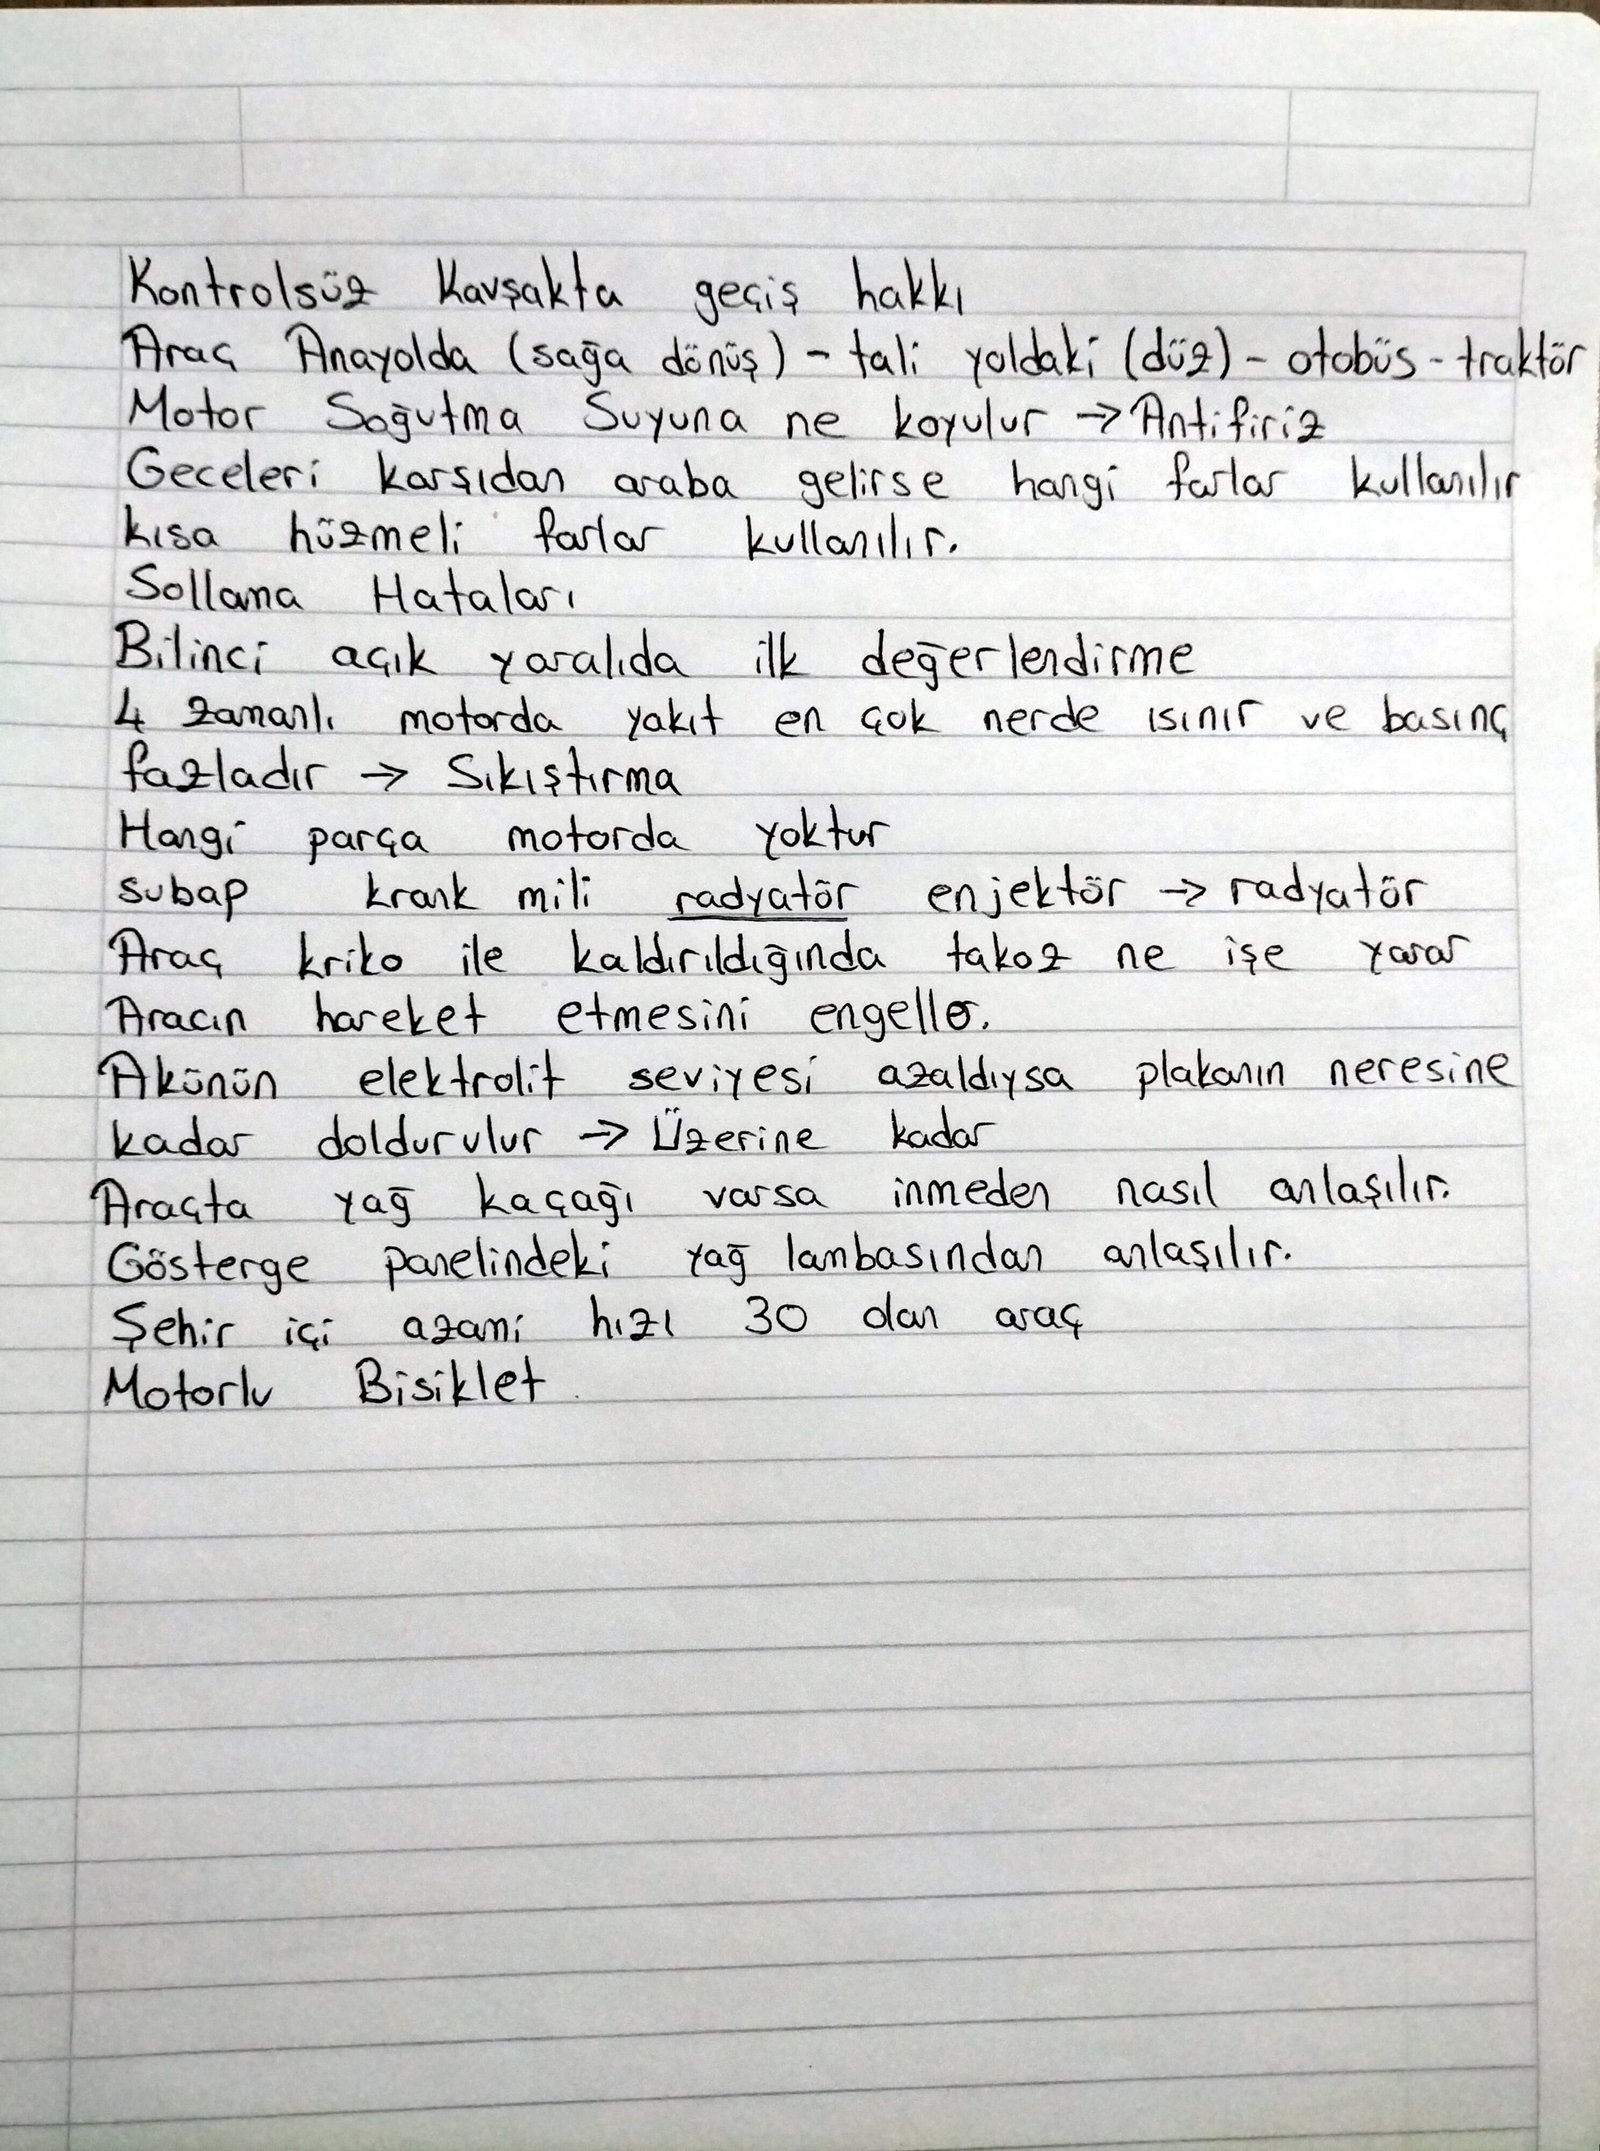 Kontrolsüz Kavşakta geçiş hakkı
Araç Anayolda (sağa dönüş) - tali yoldaki (düz) - otobüs - traktör
Motor Soğutma Suyuna ne koyulur → Antifiriz
Geceleri karşıdan araba gelirse hangi farlar kullanılır
kısa hüzmeli farlar kullanılır.
Sollama Hataları
Bilinci açık yaralıda ilk değerlendirme
4 zamanlı motorda yakıt en çok nerde ısınır ve basınç
fazladır → Sıkıştırma
Hangi parça motorda yoktur
subap krank mili radyatör enjektör → radyatör
Araç kriko ile kaldırıldığında takoz ne işe yarar
Aracın hareket etmesini engeller.
Akünün elektrolit seviyesi azaldıysa plakanın neresine
kadar doldurulur → Üzerine kadar
Araçta yağ kaçağı varsa inmeden nasıl anlaşılır.
Gösterge panelindeki yağ lambasından anlaşılır.
Şehir içi azami hızı 30 olan araç
Motorlu Bisiklet